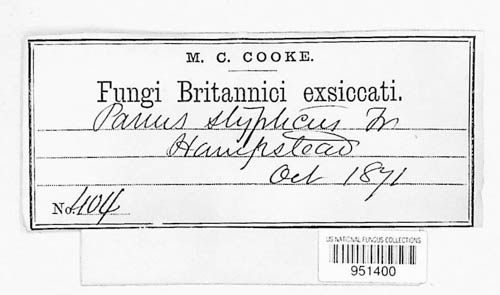 M. C. COOKE.
Fungi Britannici exsiccati.
Panus stypticus Fr
Hampstead
Oct 1871
No. 404
US NATIONAL FUNGUS COLLECTIONS
951400